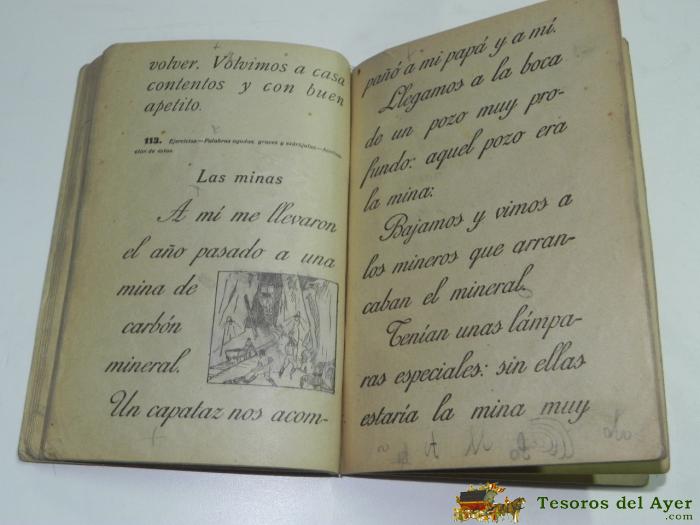 volver. Volvimos a casa
contentos y con buen
apetito.
113. Ejercicios.—Palabras agudas, graves y esdrújulas.—Acentua-
ción de éstas.
Las minas
A mí me llevaron
el año pasado a una
mina de
carbón
mineral.
Un capataz nos acom-
pañó a mi papá y a mí.
Llegamos a la boca
de un pozo muy pro-
fundo: aquel pozo era
la mina:
Bajamos y vimos a
los mineros que arran-
caban el mineral.
Tenían unas lámpa-
ras especiales: sin ellas
estaría la mina muy
Tesoros del Ayer
.com